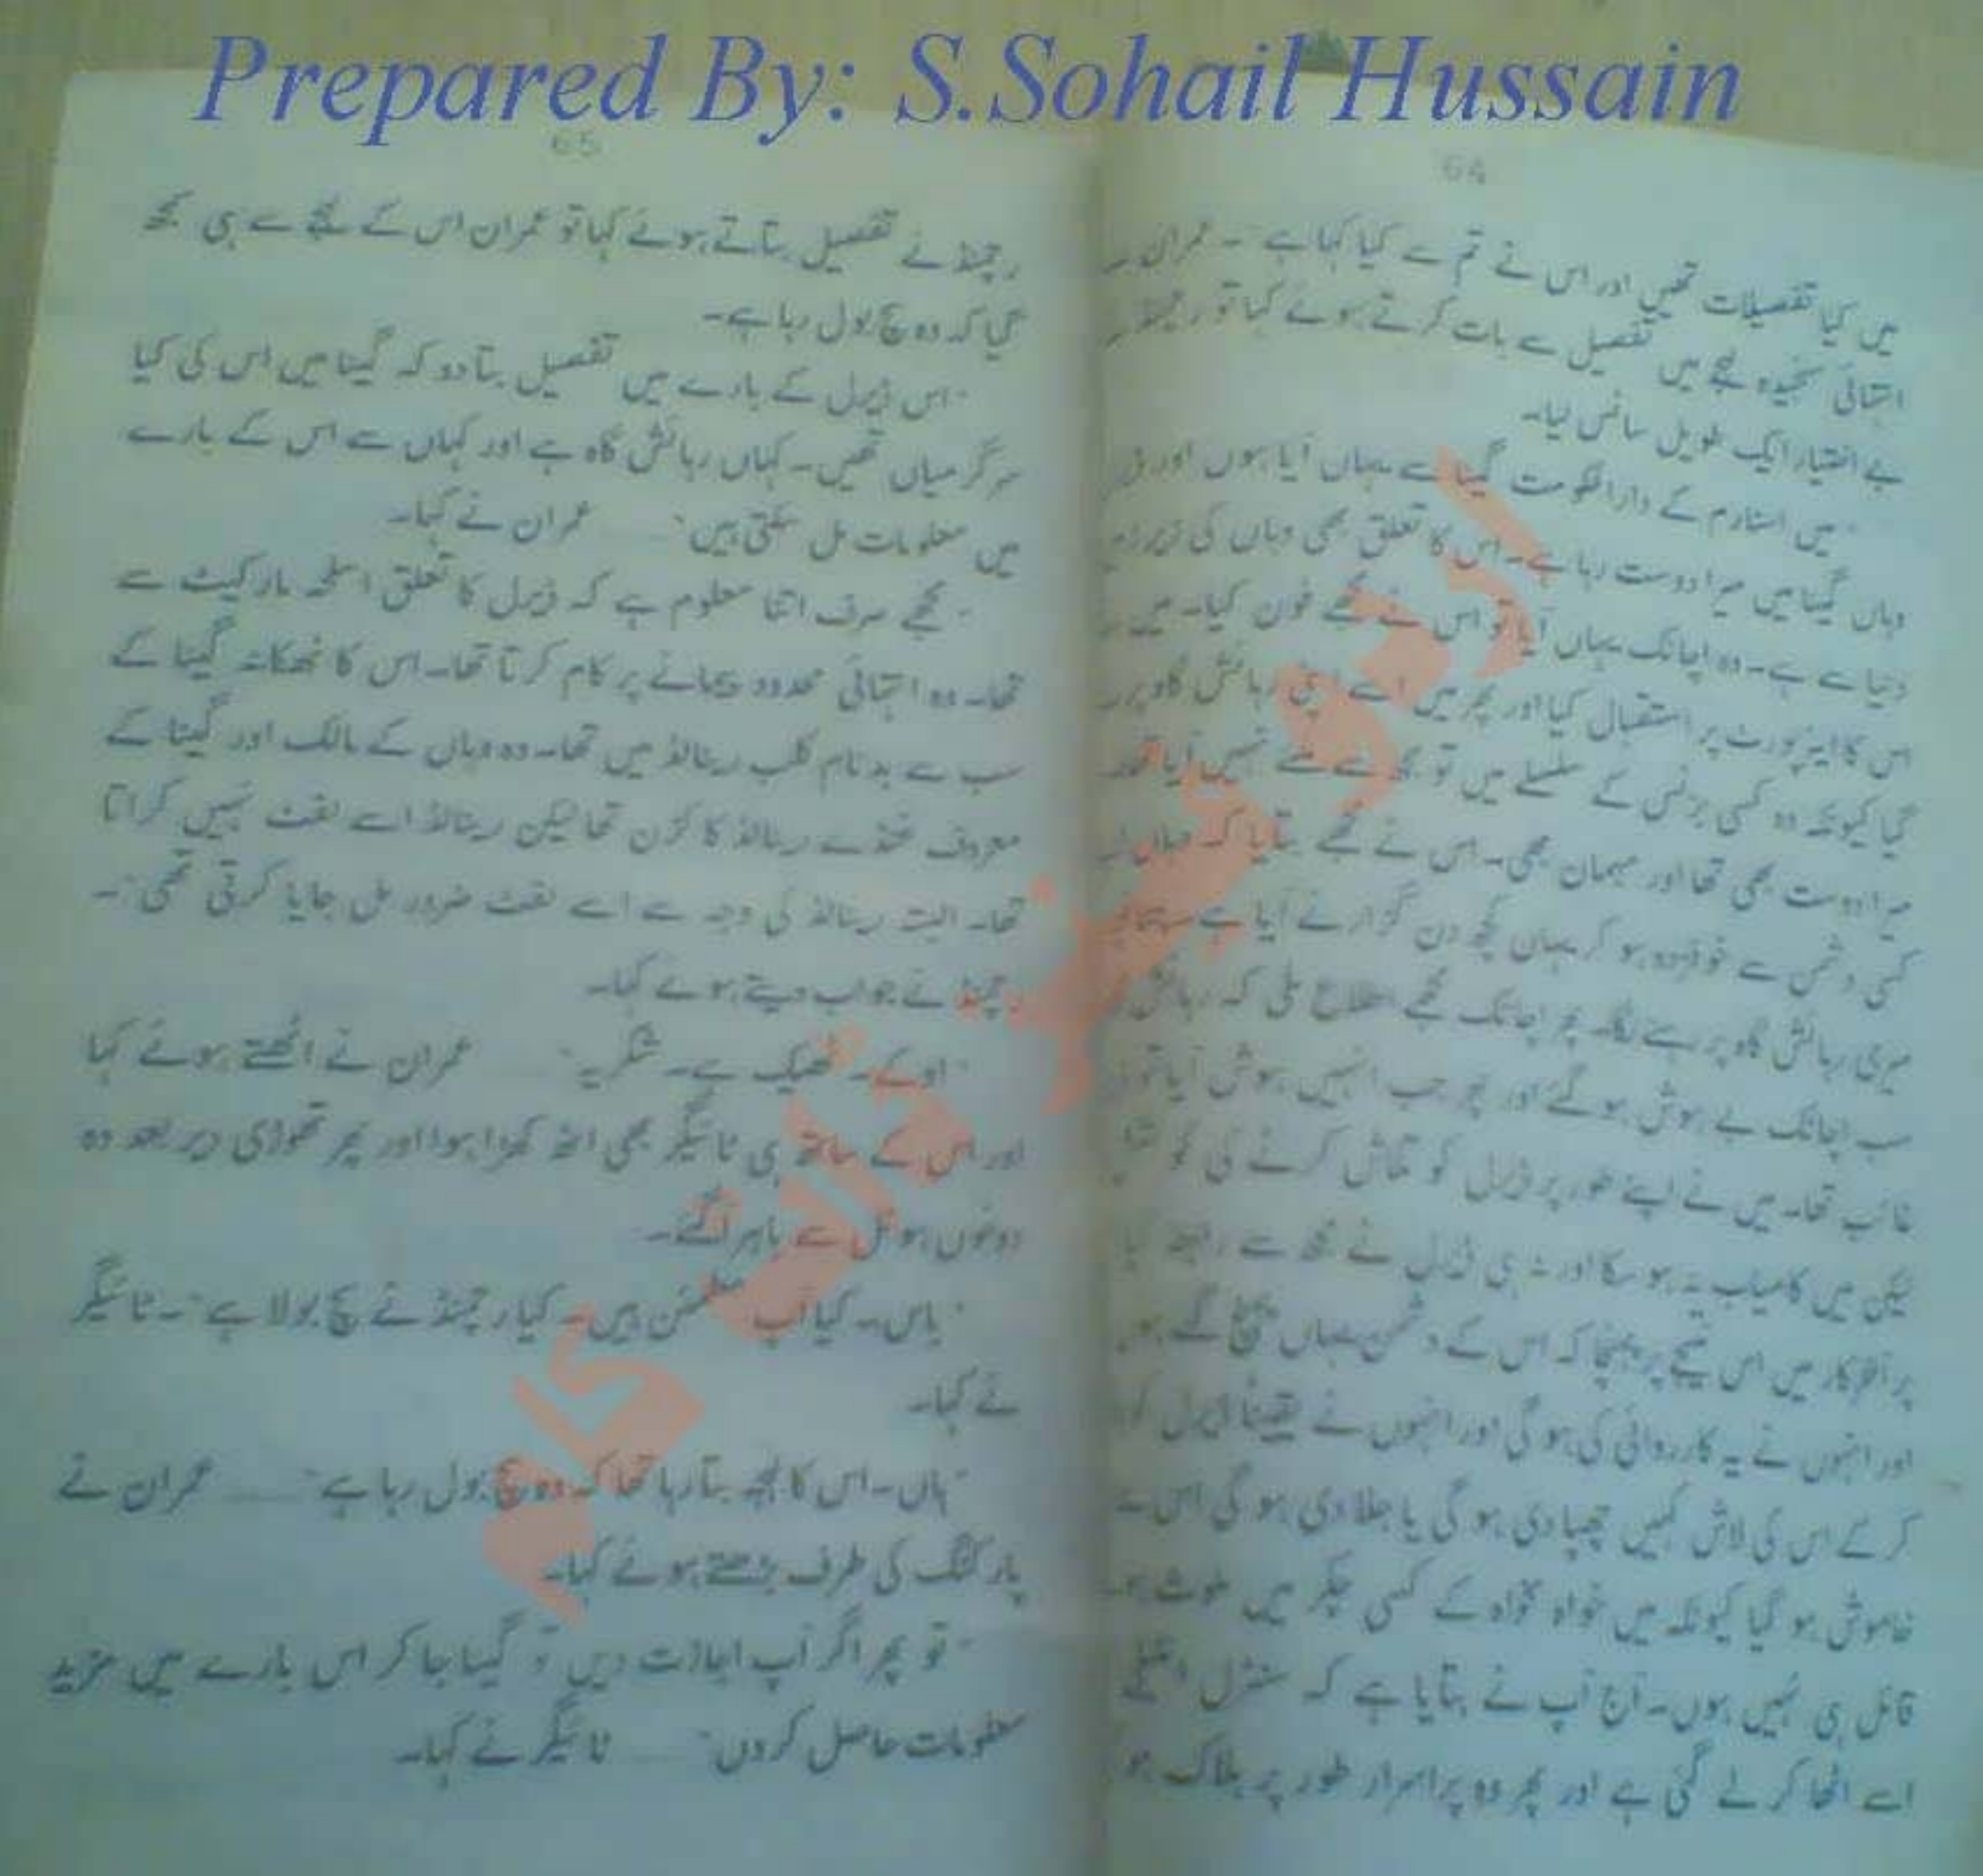 Prepared By: S.Sohail Hussain
64
میں کیا تفصیلات تھیں اور اس نے تم سے کیا کہا ہے"۔ عمران
انتہائی سنجیدہ لہجے میں تفصیل سے بات کرتے ہوئے کہا تو رچمنڈ
بے اختیار ایک طویل سانس لیا۔
"میں اسٹارم کے دارالحکومت گینا سے یہاں آیا ہوں اور
وہاں گینا میں میرا دوست رہا ہے۔ اس کا تعلق بھی وہاں کی زیر زمین
دنیا سے ہے۔ وہ اچانک یہاں آیا تو اس نے مجھے فون کیا۔ میں
اس کا ایئرپورٹ پر استقبال کیا اور پھر میں اسے اپنی رہائش گاہ پر
گیا کیونکہ وہ کسی بزنس کے سلسلے میں تو مجھ سے ملنے نہیں آیا تھا۔
میرا دوست بھی تھا اور مہمان بھی۔ اس نے مجھے بتایا کہ وہاں
کسی دشمن سے خوفزدہ ہو کر یہاں کچھ دن گزارنے آیا ہے۔ چنانچہ
میری رہائش گاہ پر رہنے لگا۔ پھر اچانک مجھے اطلاع ملی کہ رہائش
سب اچانک بے ہوش ہو گئے اور پھر جب انہیں ہوش آیا تو
غائب تھا۔ میں نے اپنے طور پر ڈیرل کو تلاش کرنے کی
لیکن میں کامیاب نہ ہو سکا اور نہ ہی ڈیرل نے مجھ سے رابطہ کیا
پر آخرکار میں اس نتیجے پر پہنچا کہ اس کے دشمن یہاں پہنچ گئے ہوں
اور انہوں نے یہ کارروائی کی ہو گی اور انہوں نے یقیناً ڈیرل کو
کر کے اس کی لاش کہیں چھپا دی ہو گی یا جلا دی ہو گی اس
خاموش ہو گیا کیونکہ میں خواہ مخواہ کے کسی چکر میں ملوث ہو
قائل ہی نہیں ہوں۔ آج آپ نے بتایا ہے کہ سنٹرل
اسے اٹھا کر لے گئی ہے اور پھر وہ پراسرار طور پر ہلاک ہو
65
رچمنڈ نے تفصیل بتاتے ہوئے کہا تو عمران اس کے لہجے سے ہی سمجھ
گیا کہ وہ سچ بول رہا ہے۔
"اس ڈیرل کے بارے میں تفصیل بتا دو کہ گینا میں اس کی کیا
سرگرمیاں تھیں۔ کہاں رہائش گاہ ہے اور کہاں سے اس کے بارے
میں معلومات مل سکتی ہیں" ...... عمران نے کہا۔
"مجھے صرف اتنا معلوم ہے کہ ڈیرل کا تعلق اسلحہ مارکیٹ سے
تھا۔ وہ انتہائی محدود پیمانے پر کام کرتا تھا۔ اس کا ٹھکانہ گینا کے
سب سے بدنام کلب رینالڈ میں تھا۔ وہ وہاں کے مالک اور گینا کے
معروف غنڈے رینالڈ کا کزن تھا لیکن رینالڈ اسے لفٹ نہیں کراتا
تھا۔ البتہ رینالڈ کی وجہ سے اسے لفٹ ضرور مل جایا کرتی تھی"۔
رچمنڈ نے جواب دیتے ہوئے کہا۔
"اوکے۔ ٹھیک ہے۔ شکریہ" ...... عمران نے اٹھتے ہوئے کہا
اور اس کے ساتھ ہی ٹائیگر بھی اٹھ کھڑا ہوا اور پھر تھوڑی دیر بعد وہ
دونوں ہوٹل سے باہر آ گئے۔
"باس۔ کیا آپ مطمئن ہیں۔ کیا رچمنڈ نے سچ بولا ہے"۔ ٹائیگر
نے کہا۔
"ہاں۔ اس کا لہجہ بتا رہا تھا کہ وہ سچ بول رہا ہے" ...... عمران نے
پارکنگ کی طرف بڑھتے ہوئے کہا۔
"تو پھر اگر آپ اجازت دیں تو گینا جا کر اس بارے میں مزید
معلومات حاصل کروں" ...... ٹائیگر نے کہا۔